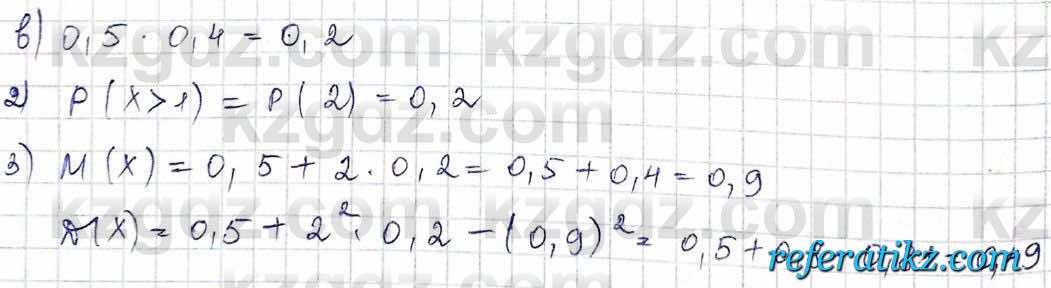 в) 0,5 · 0,4 = 0,2
kzgdz.com
2) P(X>1) = P(2) = 0,2
kzgdz.com
3) M(X) = 0,5 + 2 · 0,2 = 0,5 + 0,4 = 0,9
kzgdz.com
D(X) = 0,5 + 2² · 0,2 - (0,9)² = 0,5 +
referatikz.com